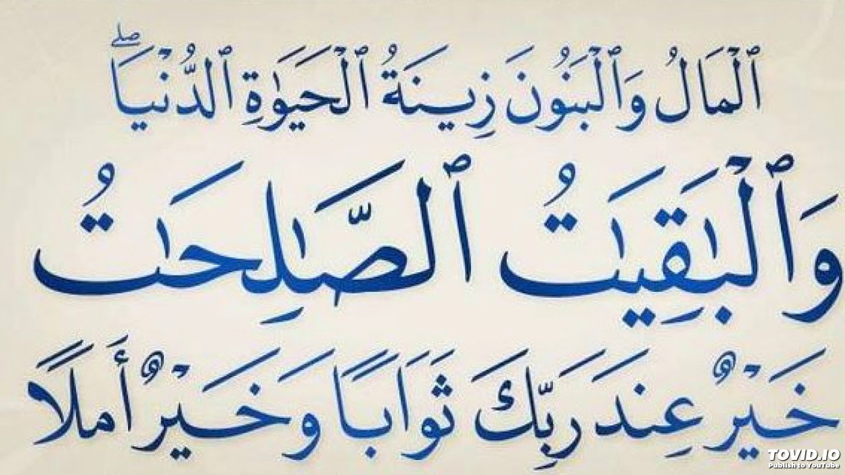 ٱلْمَالُ وَٱلْبَنُونَ زِينَةُ ٱلْحَيَوٰةِ ٱلدُّنْيَاۖ
وَٱلْبَٰقِيَٰتُ ٱلصَّٰلِحَٰتُ
خَيْرٌ عِندَ رَبِّكَ ثَوَابًا وَخَيْرٌ أَمَلًا
TOVID.IO
Publish to YouTube